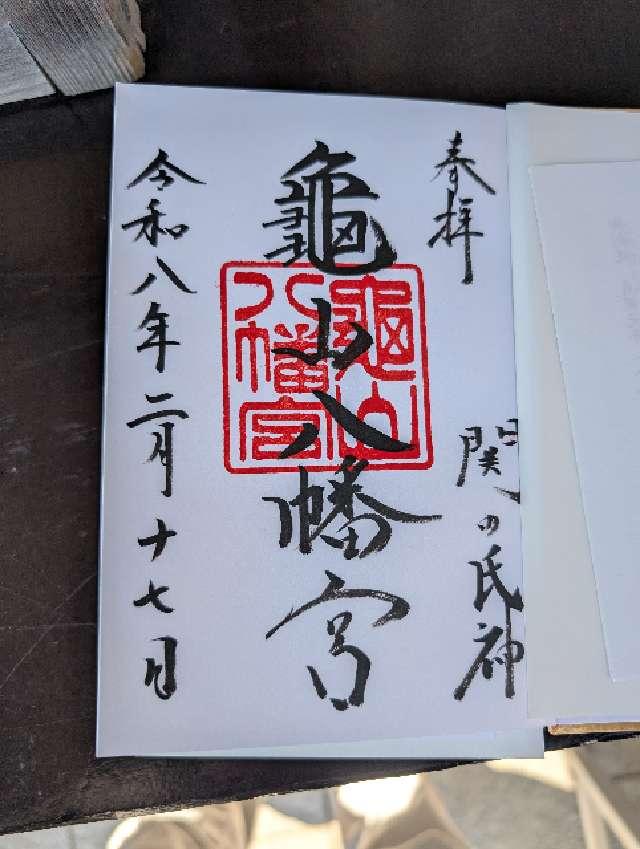 奉拝
関の氏神
龜山八幡宮
龜山八幡宮
令和八年二月十七日